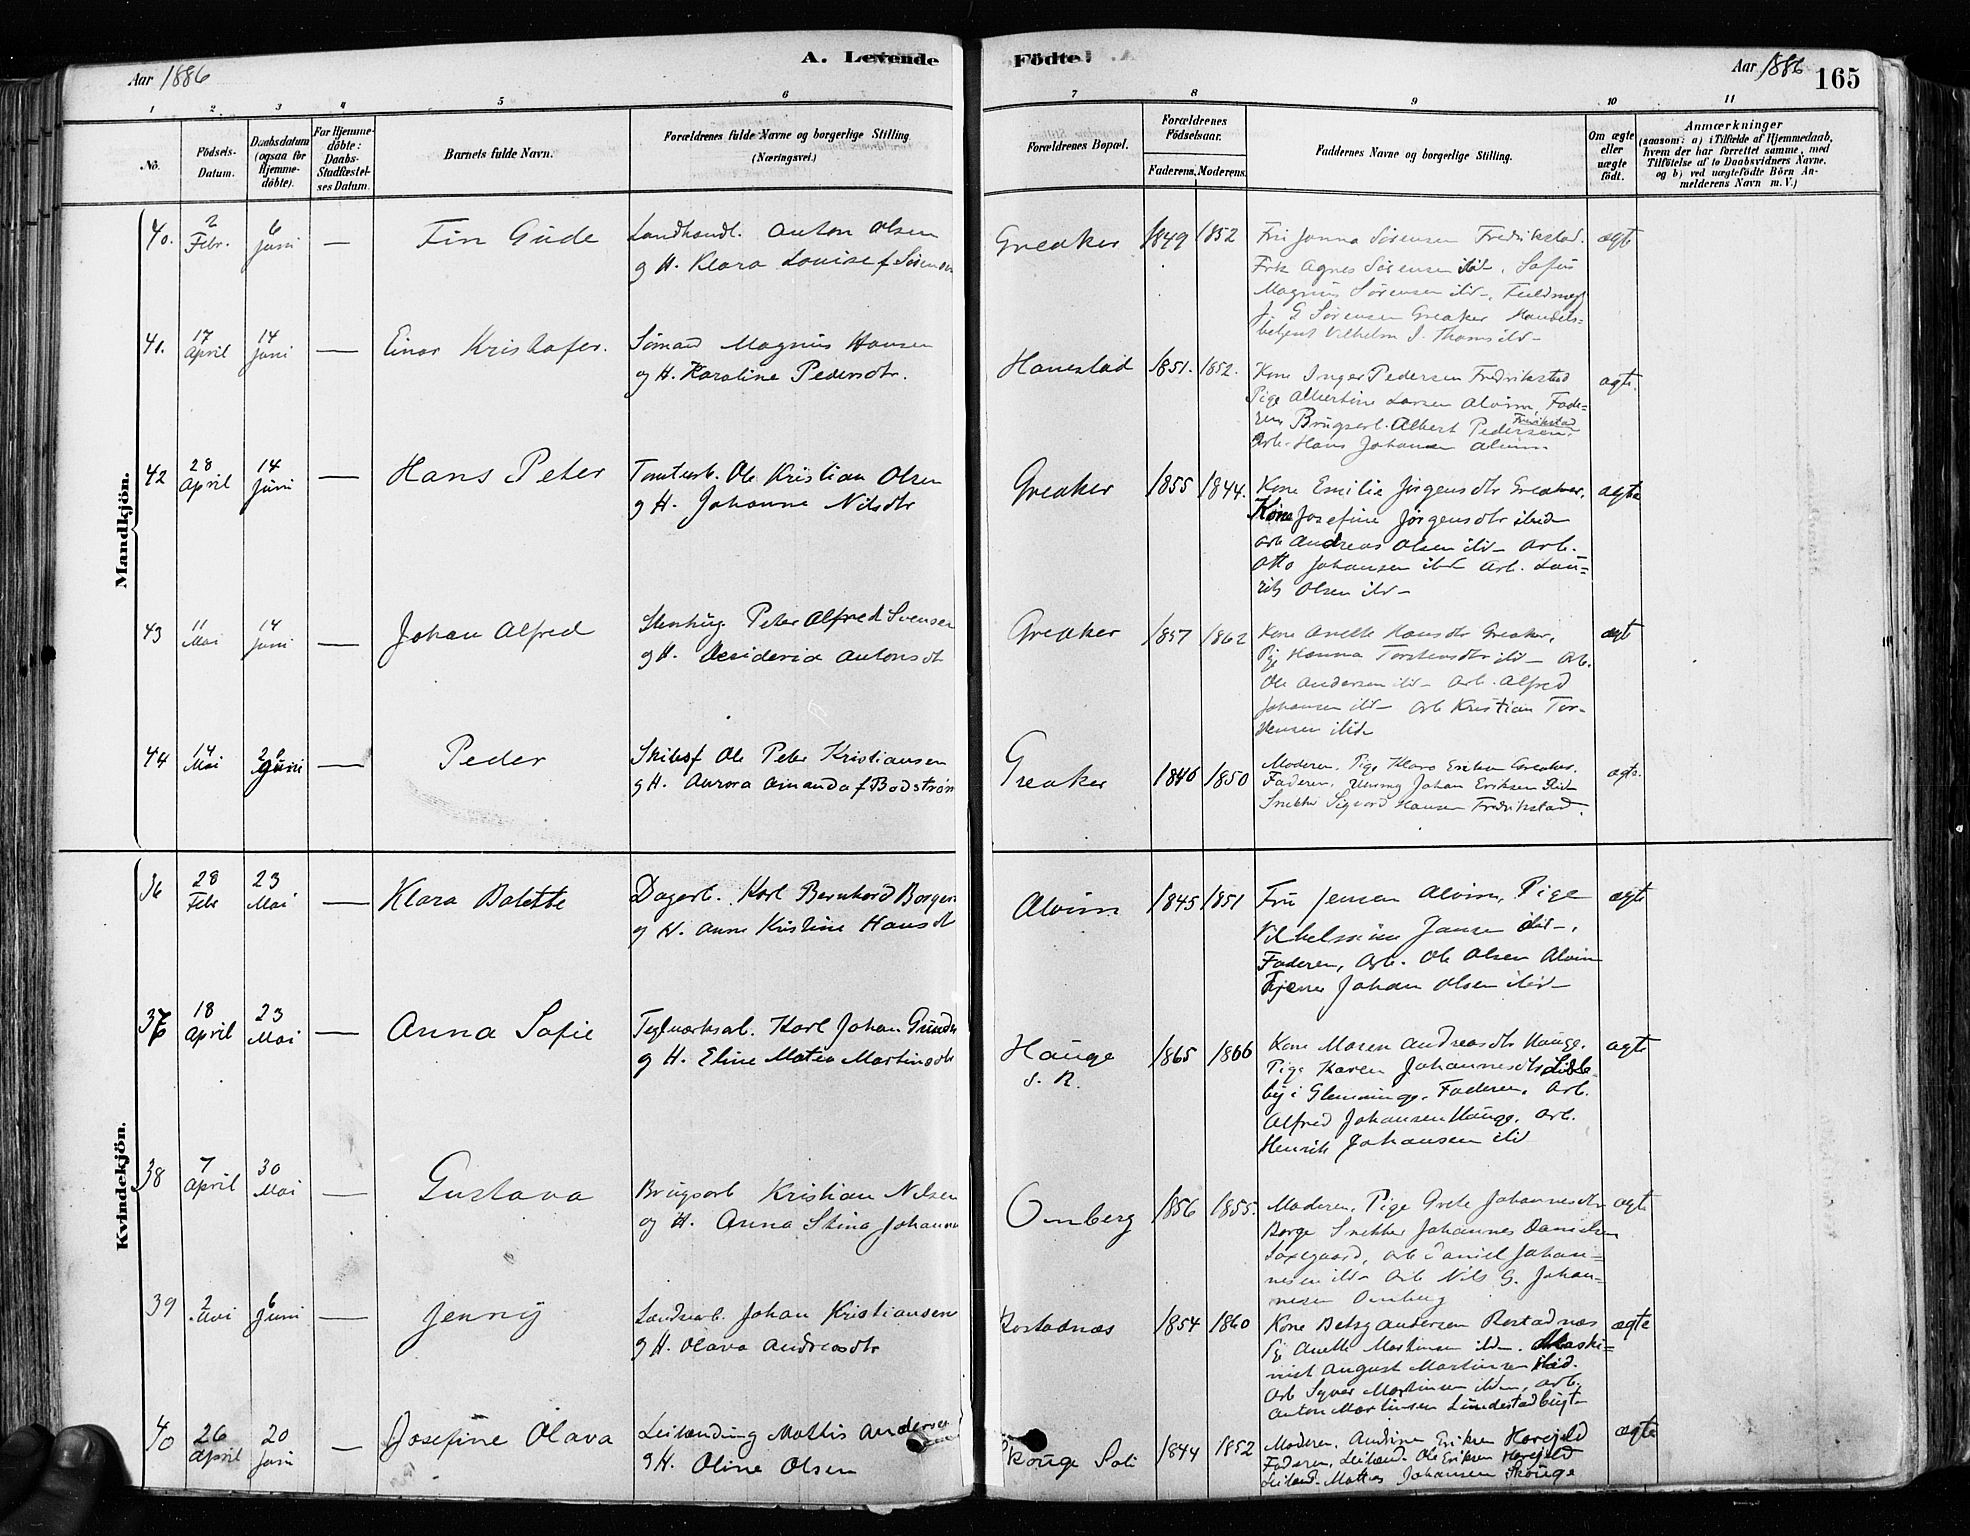 Aar 1886
A. Levende
Födte.
Aar 1886
165
1 2 3 4 5 6 7 8 9 10 11
No.
Födsels-
Datum.
Daabsdatum
(ogsaa for
Hjemme-
döbte).
For Hjemme-
döbte:
Daabs-
Stadfæstel-
ses Datum.
Barnets fulde Navn.
Forældrenes fulde Navne og borgerlige Stilling
(Næringsvei.)
Forældrenes Bopæl.
Forældrenes
Födselsaar.
Faderens. Moderens.
Faddernes Navne og borgerlige Stilling.
Om ægte
eller
uægte
födt.
Anmærkninger
(saasom: a) i Tilfælde af Hjemmedaab,
hvem der har forrettet samme, med
Tilföielse af to Daabsvidners Navne,
og b) ved uægtefödte Börn An-
melderens Navn m. V.)
Mandkjön.
40. 2 Febr. 6 Juni — Fin Gude
Landhandl. Anton Olsen
g H. Klara Louise f Sörensen
Greaker 1849 1852
Fru Janna Sörensen Fredrikstad.
Frk Agnes Sörensen ibid, Sofus
Magnus Sörensen ibd-, Fuldmægt
J. G Sörensen Greaker Handels-
betjent Vilhelm J. Thoms ibd-
ægte
41. 17 April 14 Juni — Einar Kristofer.
Sömand Magnus Hansen
og H. Karoline Pedersdtr.
Hanestad 1851. 1852.
Kone Inger Pedersen Fredrikstad
Pige Albertine Larsen Alvim, Fade-
ren Brugsarb. Albert Pedersen, Fredrikstad
Arb. Hans Johansen Alvim
ægte.
42 28 April 14 Juni — Hans Peter
Tomtearb. Ole Kristian Olsen
g H. Johanne Nilsdtr
Greaker 1855 1844.
Kone Emilie Jörgensdtr Greaker,
Kone Josefine Jörgensdtr ibid
Arb Andreas Olsen ibd- Arb.
Otto Johansen ibd Arb. Lau-
rits Olsen ibd-
ægte
43 11 Mai 14 Juni — Johan Alfred
Stenhug. Peter Alfred Svensen
g H. Desideria Antonsdt
Greaker 1857 1862
Kone Anette Hansdtr Greaker,
Pige Hanna Torstensdtr ibd- Arb.
Ole Andersen ibd- Arb. Alfred
Johansen ibd- Arb Kristian Tor-
stensen ibid
ægte
44 14 Mai 26 Juni — Peder
Skibsf Ole Peter Kristiansen
g H. Aurora Amanda f Bodström
Greaker 1846 1850
Moderen, Pige Klara Eriksen Greaker.
Faderen, Johan Eriksen ibid
Snekker Sigvard Hansen Fredrikstad.
ægte.
Kvindekjön.
36 28 Febr 23 Mai — Klara Bolette
Dagarb. Karl Bernhard Borgen
og H. Anne Kristine Hansdt
Alvim 1845 1851
Fru Jensen Alvim, Pige
Vilhelmine Jansen ibid-,
Faderen, Arb. Ole Olsen Alvim
Tjener Johan Olsen ibid-
ægte
37 18 April 23 Mai — Anna Sofie
Teglværksarb. Karl Johan
g H. Eline Matea Martinsdtr
Hauge s. R. 1865 1866
Kone Maren Andreasdtr Hauge.
Pige Karen Johannesdtr Lisle-
by i Glemminge, Faderen, Arb.
Alfred Johansen Hauge, Arb.
Henrik Johansen ibid
ægte
38 7 April 30 Mai — Gustava
Brugsarb Kristian Nilsen
og H. Anna Stina Johanne
Omberg 1856 1855.
Moderen, Pige Grete Johannesdtr
Borge Snekker Johannes Danielsen
Saxegaard, Arb Daniel Johan-
nesen ibd- Arb Nils G. Johan-
nesen Omberg
ægte
39 2 6 Juni — Jenny
Landarb. Johan Kristiansen
g H. Olava Andreasdtr
Rostadnæs 1854 1860
Kone Betsy Andersen Rostadnæs
Pg Anette Martinsen ibdm. Maski-
nist August Martinsen ibid.
Arb Syver Martinsen ibdm, Arb.
Anton Martinsen Lundestadbugten
ægte
40 26 April 20 Juni — Josefine Olava
Leilænding Mattis Andersen
g H. Oline Olsen
Skouge Soli 1844 1852
Moderen, Andine Eriksen Harejeld
Faderen, Leilænd. Ole Eriksen Harejeld
Leilænd. Mattis Johansen Skouge
ægte